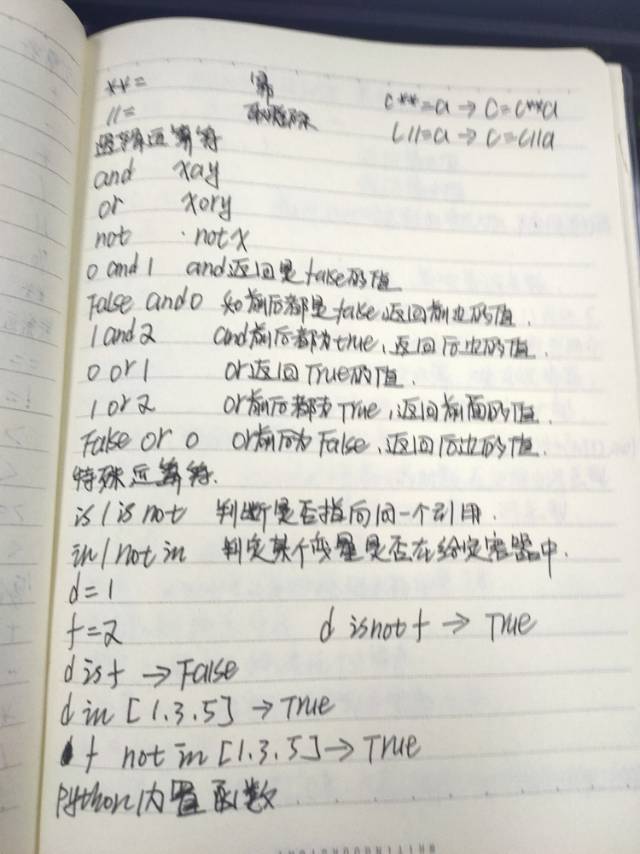 **= 幂 c**=a → c=c**a
//= 取整除 c//=a → c=c//a
逻辑运算符
and xay
or xory
not ·not x
0 and 1 and返回是false的值
False and 0 如前后都是false,返回前边的值.
1 and 2 and前后都为true,返回后边的值.
0 or 1 or返回True的值.
1 or 2 or前后都为True,返回前面的值.
False or 0 or前后为False,返回后边的值.
特殊运算符.
is / is not 判断是否指向同一个引用.
in / not in 判定某个变量是否在给定容器中.
d=1
f=2 d is not f → True
d is f → False
d in [1.3.5] → True
f not in [1.3.5] → True
Python内置函数